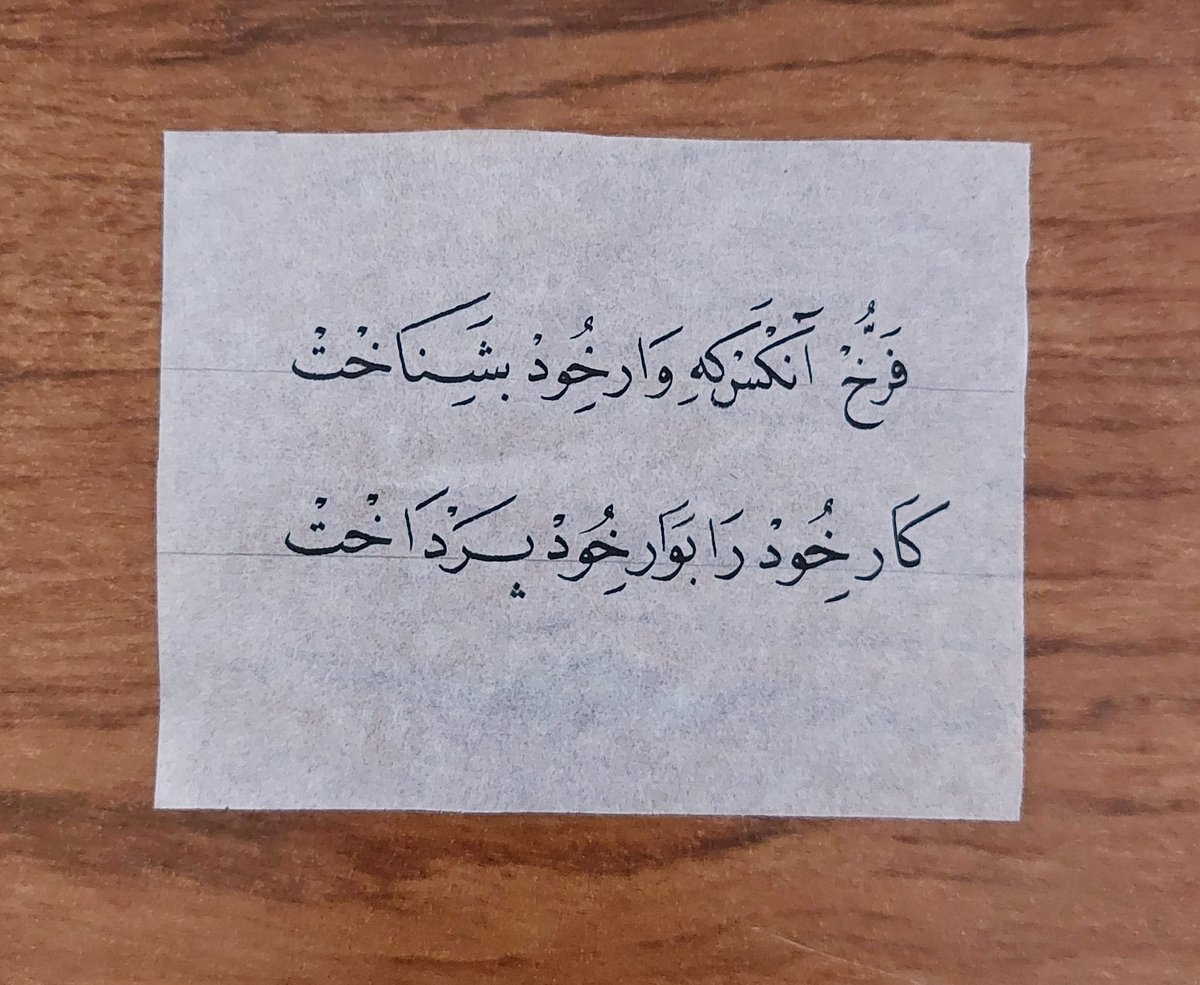 فَرُّخْ آنْکَسْ کِهِ وَارِ خُودْ بِشَنِاخْتْ
کَارِ خُودْ رَا بِوَارِ خُودْ پَرْدَاخْتْ